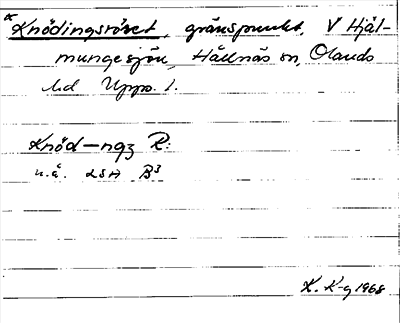 Knödingsröset, gränspunkt, V Hjäl-
mungesjön, Hållnäs sn, Olands
hd Upps. l.
Knöd—ngz R:
u.å. LSA B³
K. K-g 1968